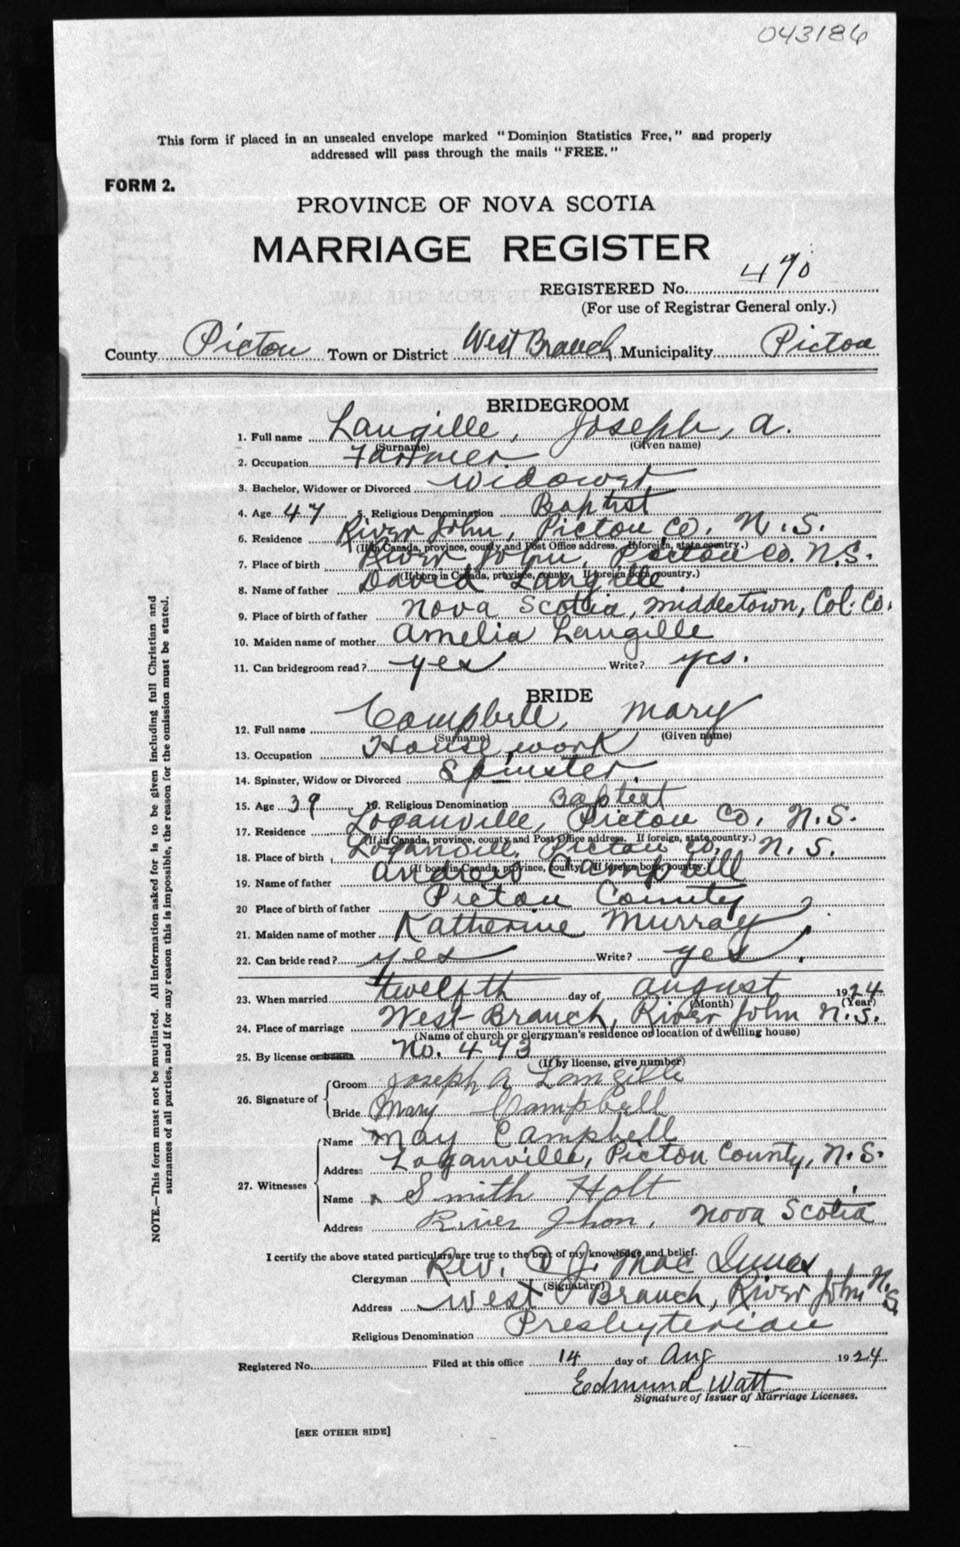 043186
This form if placed in an unsealed envelope marked "Dominion Statistics Free," and properly
addressed will pass through the mails "FREE."
FORM 2.
PROVINCE OF NOVA SCOTIA
MARRIAGE REGISTER
REGISTERED No. 470
(For use of Registrar General only.)
County Pictou Town or District West Branch Municipality Pictou
BRIDEGROOM
1. Full name Langille, Joseph, A.
(Surname) (Given name)
2. Occupation Farmer
3. Bachelor, Widower or Divorced Widower
4. Age 47 5. Religious Denomination Baptist
6. Residence River John, Pictou Co. N.S.
(If in Canada, province, county and Post Office address. If foreign, state country.)
7. Place of birth River John, Pictou Co. N.S.
(If born in Canada, province, county. If foreign born, country.)
8. Name of father David Langille
9. Place of birth of father Nova Scotia, Middletown, Col: Co.
10. Maiden name of mother Amelia Langille
11. Can bridegroom read? yes Write? yes.
BRIDE
12. Full name Campbell, Mary
(Surname) (Given name)
13. Occupation House work
14. Spinster, Widow or Divorced Spinster.
15. Age 39 16. Religious Denomination Baptist
17. Residence Loganville, Pictou Co, N.S.
(If in Canada, province, county and Post Office address. If foreign, state country.)
18. Place of birth Loganville, Pictou Co. N.S.
(If born in Canada, province, county. If foreign born, country.)
19. Name of father Andrew Campbell
20 Place of birth of father Pictou County
21. Maiden name of mother Katherine Murray
22. Can bride read? yes Write? yes.
23. When married twelfth day of August 1924
(Month) (Year)
24. Place of marriage West-Branch, River John N.S.
(Name of church or clergyman's residence or location of dwelling house)
25. By license or banns No. 473
(If by license, give number)
26. Signature of
Groom Joseph A Langille
Bride Mary Campbell
27. Witnesses
Name May Campbell
Address Loganville, Pictou County, N.S.
Name Smith Holt
Address River Jhon, Nova Scotia
I certify the above stated particulars are true to the best of my knowledge and belief.
Clergyman Rev. C. J. MacInnes
(Signature)
Address West Branch, River John N.S.
Religious Denomination Presbyterian
Registered No. Filed at this office 14 day of Aug 1924
Edmund Watt
Signature of Issuer of Marriage Licenses.
[SEE OTHER SIDE]
NOTE.—This form must not be mutilated. All information asked for is to be given including full Christian and
surnames of all parties, and if for any reason this is impossible, the reason for the omission must be stated.